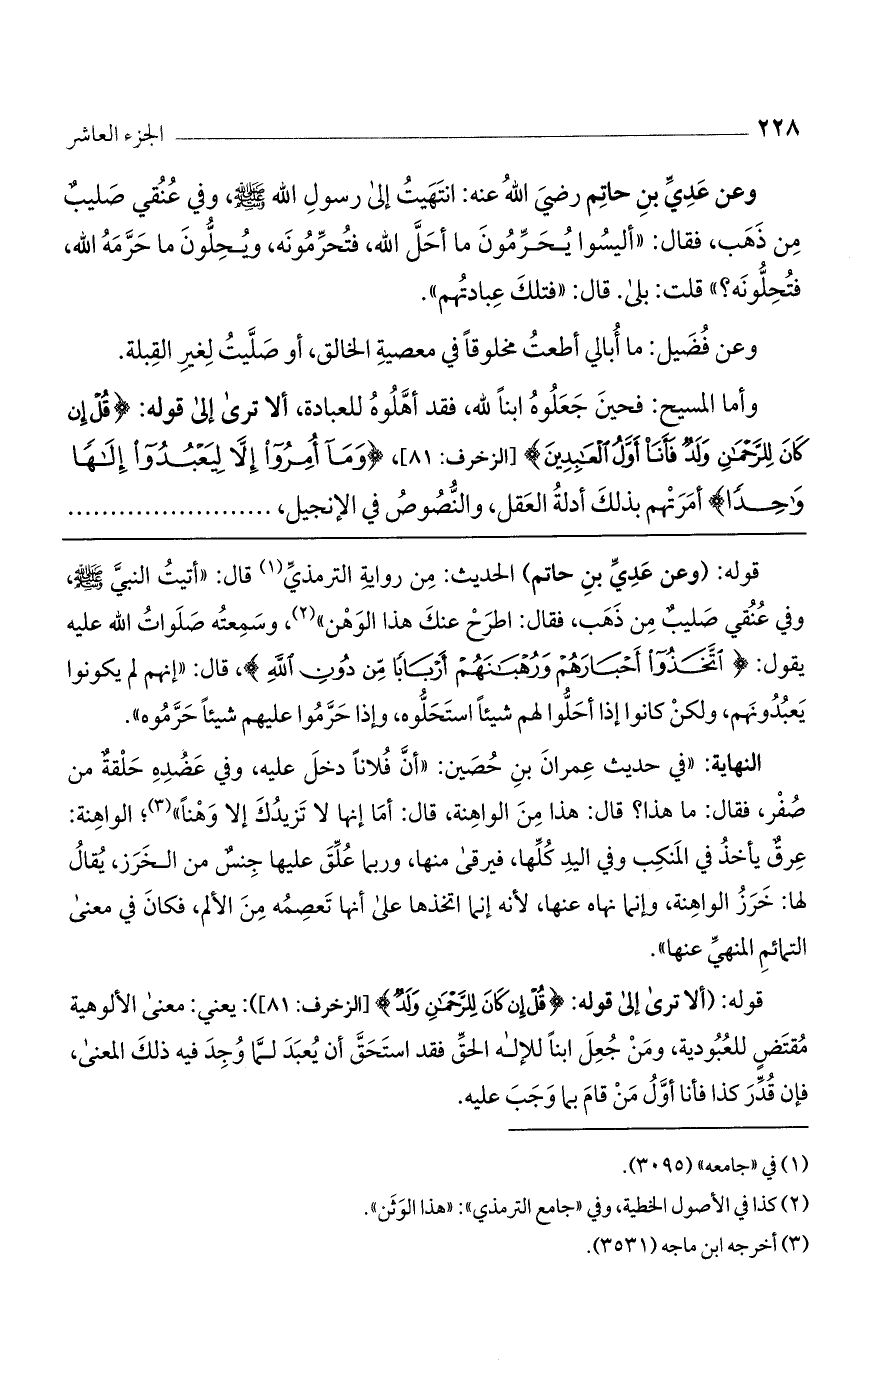 ٢٢٨ الجزء العاشر
وعن عَدِيِّ بنِ حاتِم رضيَ اللهُ عنه: انتَهَيتُ إلىٰ رسولِ الله ﷺ، وفي عُنُقي صَليبٌ
مِن ذَهَب، فقال: «أليسُوا يُـحَـرِّمُونَ ما أحَلَّ الله، فتُحرِّمُونَه، ويـُحِلُّونَ ما حَرَّمَهُ الله،
فتُحِلُّونَه؟» قلت: بلىٰ. قال: «فتلكَ عِبادتُهم».
وعن فُضَيل: ما أُبالي أطعتُ مخلوقاً في معصيةِ الخالق، أو صَلَّيتُ لِغيرِ القِبلة.
وأما المسيح: فحينَ جَعَلُوهُ ابناً لله، فقد أهَّلُوهُ للعبادة، ألا ترىٰ إلىٰ قوله: ﴿قُلْ إِن
كَانَ لِلرَّحْمَٰنِ وَلَدٌ فَأَنَا۠ أَوَّلُ ٱلْعَٰبِدِينَ﴾ [الزخرف: ٨١]، ﴿وَمَآ أُمِرُوٓا۟ إِلَّا لِيَعْبُدُوٓا۟ إِلَٰهًا
وَٰحِدًا﴾ أمَرَتْهم بذلكَ أدلةُ العَقل، والنُّصُوصُ في الإنجيل، .......................
قوله: (وعن عَدِيِّ بنِ حاتم) الحديث: مِن روايةِ الترمذيِّ(١) قال: «أتيتُ النبيَّ ﷺ،
وفي عُنُقي صَليبٌ مِن ذَهَب، فقال: اطرَحْ عنكَ هذا الوَهْن»(٢)، وسَمِعتُه صَلَواتُ الله عليه
يقول: ﴿ٱتَّخَذُوٓا۟ أَحْبَارَهُمْ وَرُهْبَٰنَهُمْ أَرْبَابًا مِّن دُونِ ٱللَّهِ﴾، قال: «إنهم لم يكونوا
يَعبُدُونَهم، ولكنْ كانوا إذا أحَلُّوا لهم شيئاً استَحَلُّوه، وإذا حَرَّمُوا عليهم شيئاً حَرَّمُوه».
النهاية: «في حديث عِمرانَ بنِ حُصَين: «أنَّ فُلاناً دخلَ عليه، وفي عَضُدِهِ حَلْقةٌ من
صُفْر، فقال: ما هذا؟ قال: هذا مِنَ الواهِنة، قال: أمَا إنها لا تَزيدُكَ إلا وَهْناً»(٣)؛ الواهِنة:
عِرقٌ يأخذُ في المَنكِب وفي اليدِ كُلِّها، فيرقىٰ منها، وربما عُلِّقَ عليها جِنسٌ من الـخَرَز، يُقالُ
لها: خَرَزُ الواهِنة، وإنما نهاه عنها، لأنه إنما اتخذها علىٰ أنها تَعصِمُه مِنَ الألم، فكانَ في معنىٰ
التمائمِ المنهيِّ عنها».
قوله: (ألا ترىٰ إلىٰ قوله: ﴿قُلْ إِن كَانَ لِلرَّحْمَٰنِ وَلَدٌ﴾ [الزخرف: ٨١]): يعني: معنىٰ الألوهية
مُقتَضٍ للعُبُودية، ومَنْ جُعِلَ ابناً للإلٰه الحقِّ فقد استَحَقَّ أن يُعبَدَ لـمَّا وُجِدَ فيه ذلكَ المعنىٰ،
فإن قُدِّرَ كذا فأنا أوَّلُ مَنْ قامَ بما وَجَبَ عليه.
(١) في «جامعه» (٣٠٩٥).
(٢) كذا في الأصول الخطية، وفي «جامع الترمذي»: «هذا الوَثَن».
(٣) أخرجه ابن ماجه (٣٥٣١).